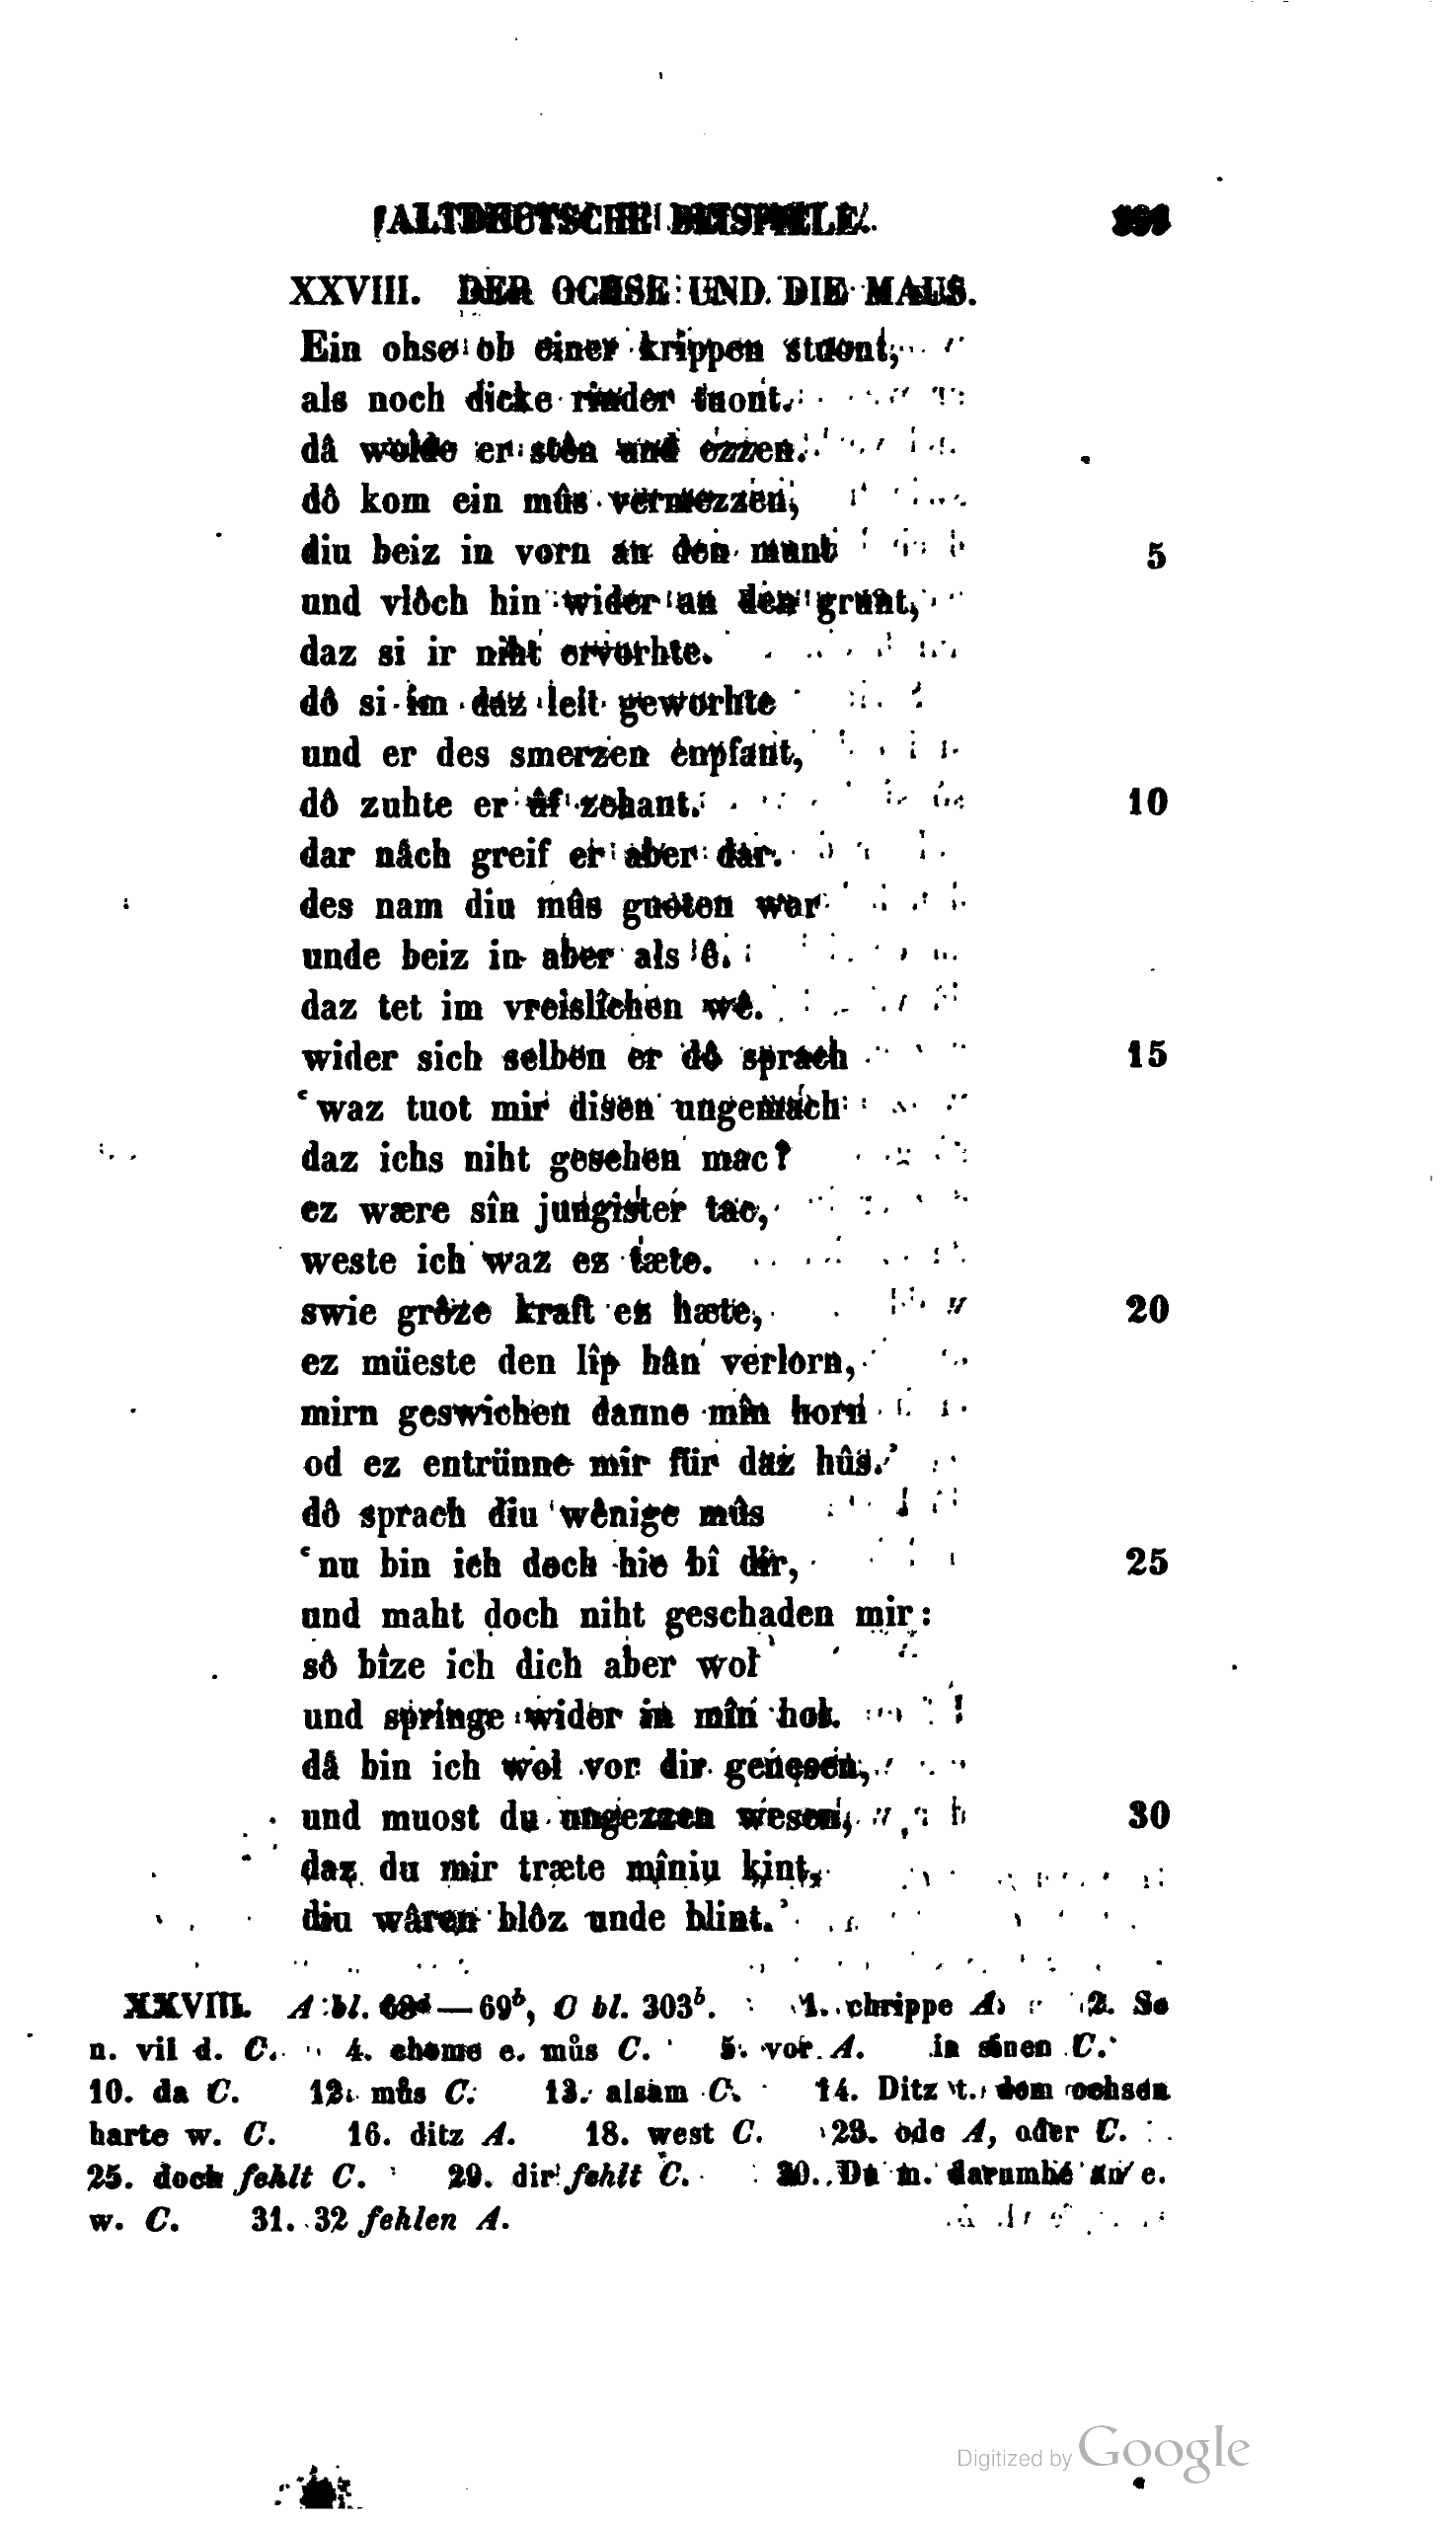 ALTDEUTSCHE BEISPIELE.
XXVIII. DER OCHSE UND DIE MAUS.
Ein ohse ob einer krippen stuont,
als noch dicke rinder tuont.
dâ wolde er stên und ezzen.
dô kom ein mûs vermezzen,
diu beiz in vorn an den munt 5
und vlôch hin wider an den grunt,
daz si ir niht ervorhte.
dô si im daz leit geworhte
und er des smerzen enpfant,
dô zuhte er ûf zehant. 10
dar nâch greif er aber dar.
des nam diu mûs guoten war
unde beiz in aber als ê.
daz tet im vreislîchen wê.
wider sich selben er dô sprach 15
‘waz tuot mir disen ungemach
daz ichs niht gesehen mac?
ez wære sîn jungister tac,
weste ich waz ez tæte.
swie grôze kraft ez hæte, 20
ez müeste den lîp hân verlorn,
mirn geswichen danne mîn horn
od ez entrünne mir für daz hûs.’
dô sprach diu wênige mûs
‘nu bin ich doch hie bî dir, 25
und maht doch niht geschaden mir:
sô bîze ich dich aber wol
und springe wider in mîn hol.
dâ bin ich wol vor dir genesen,
und muost du ungezzen wesen, 30
daz du mir træte mîniu kint,
diu wâren blôz unde blint.’
XXVIII. A bl. 68d—69b, C bl. 303b. 1. chrippe A. 2. So
n. vil d. C. 4. chome e. můs C. 5. vor A. in sinen C.
10. da C. 12. můs C. 13. alsam C. 14. Ditz t. dem ochsen
harte w. C. 16. ditz A. 18. west C. 23. ode A, oder C.
25. doch fehlt C. 29. dir fehlt C. 30. Du m. darumbe an e.
w. C. 31. 32 fehlen A.
Digitized by Google